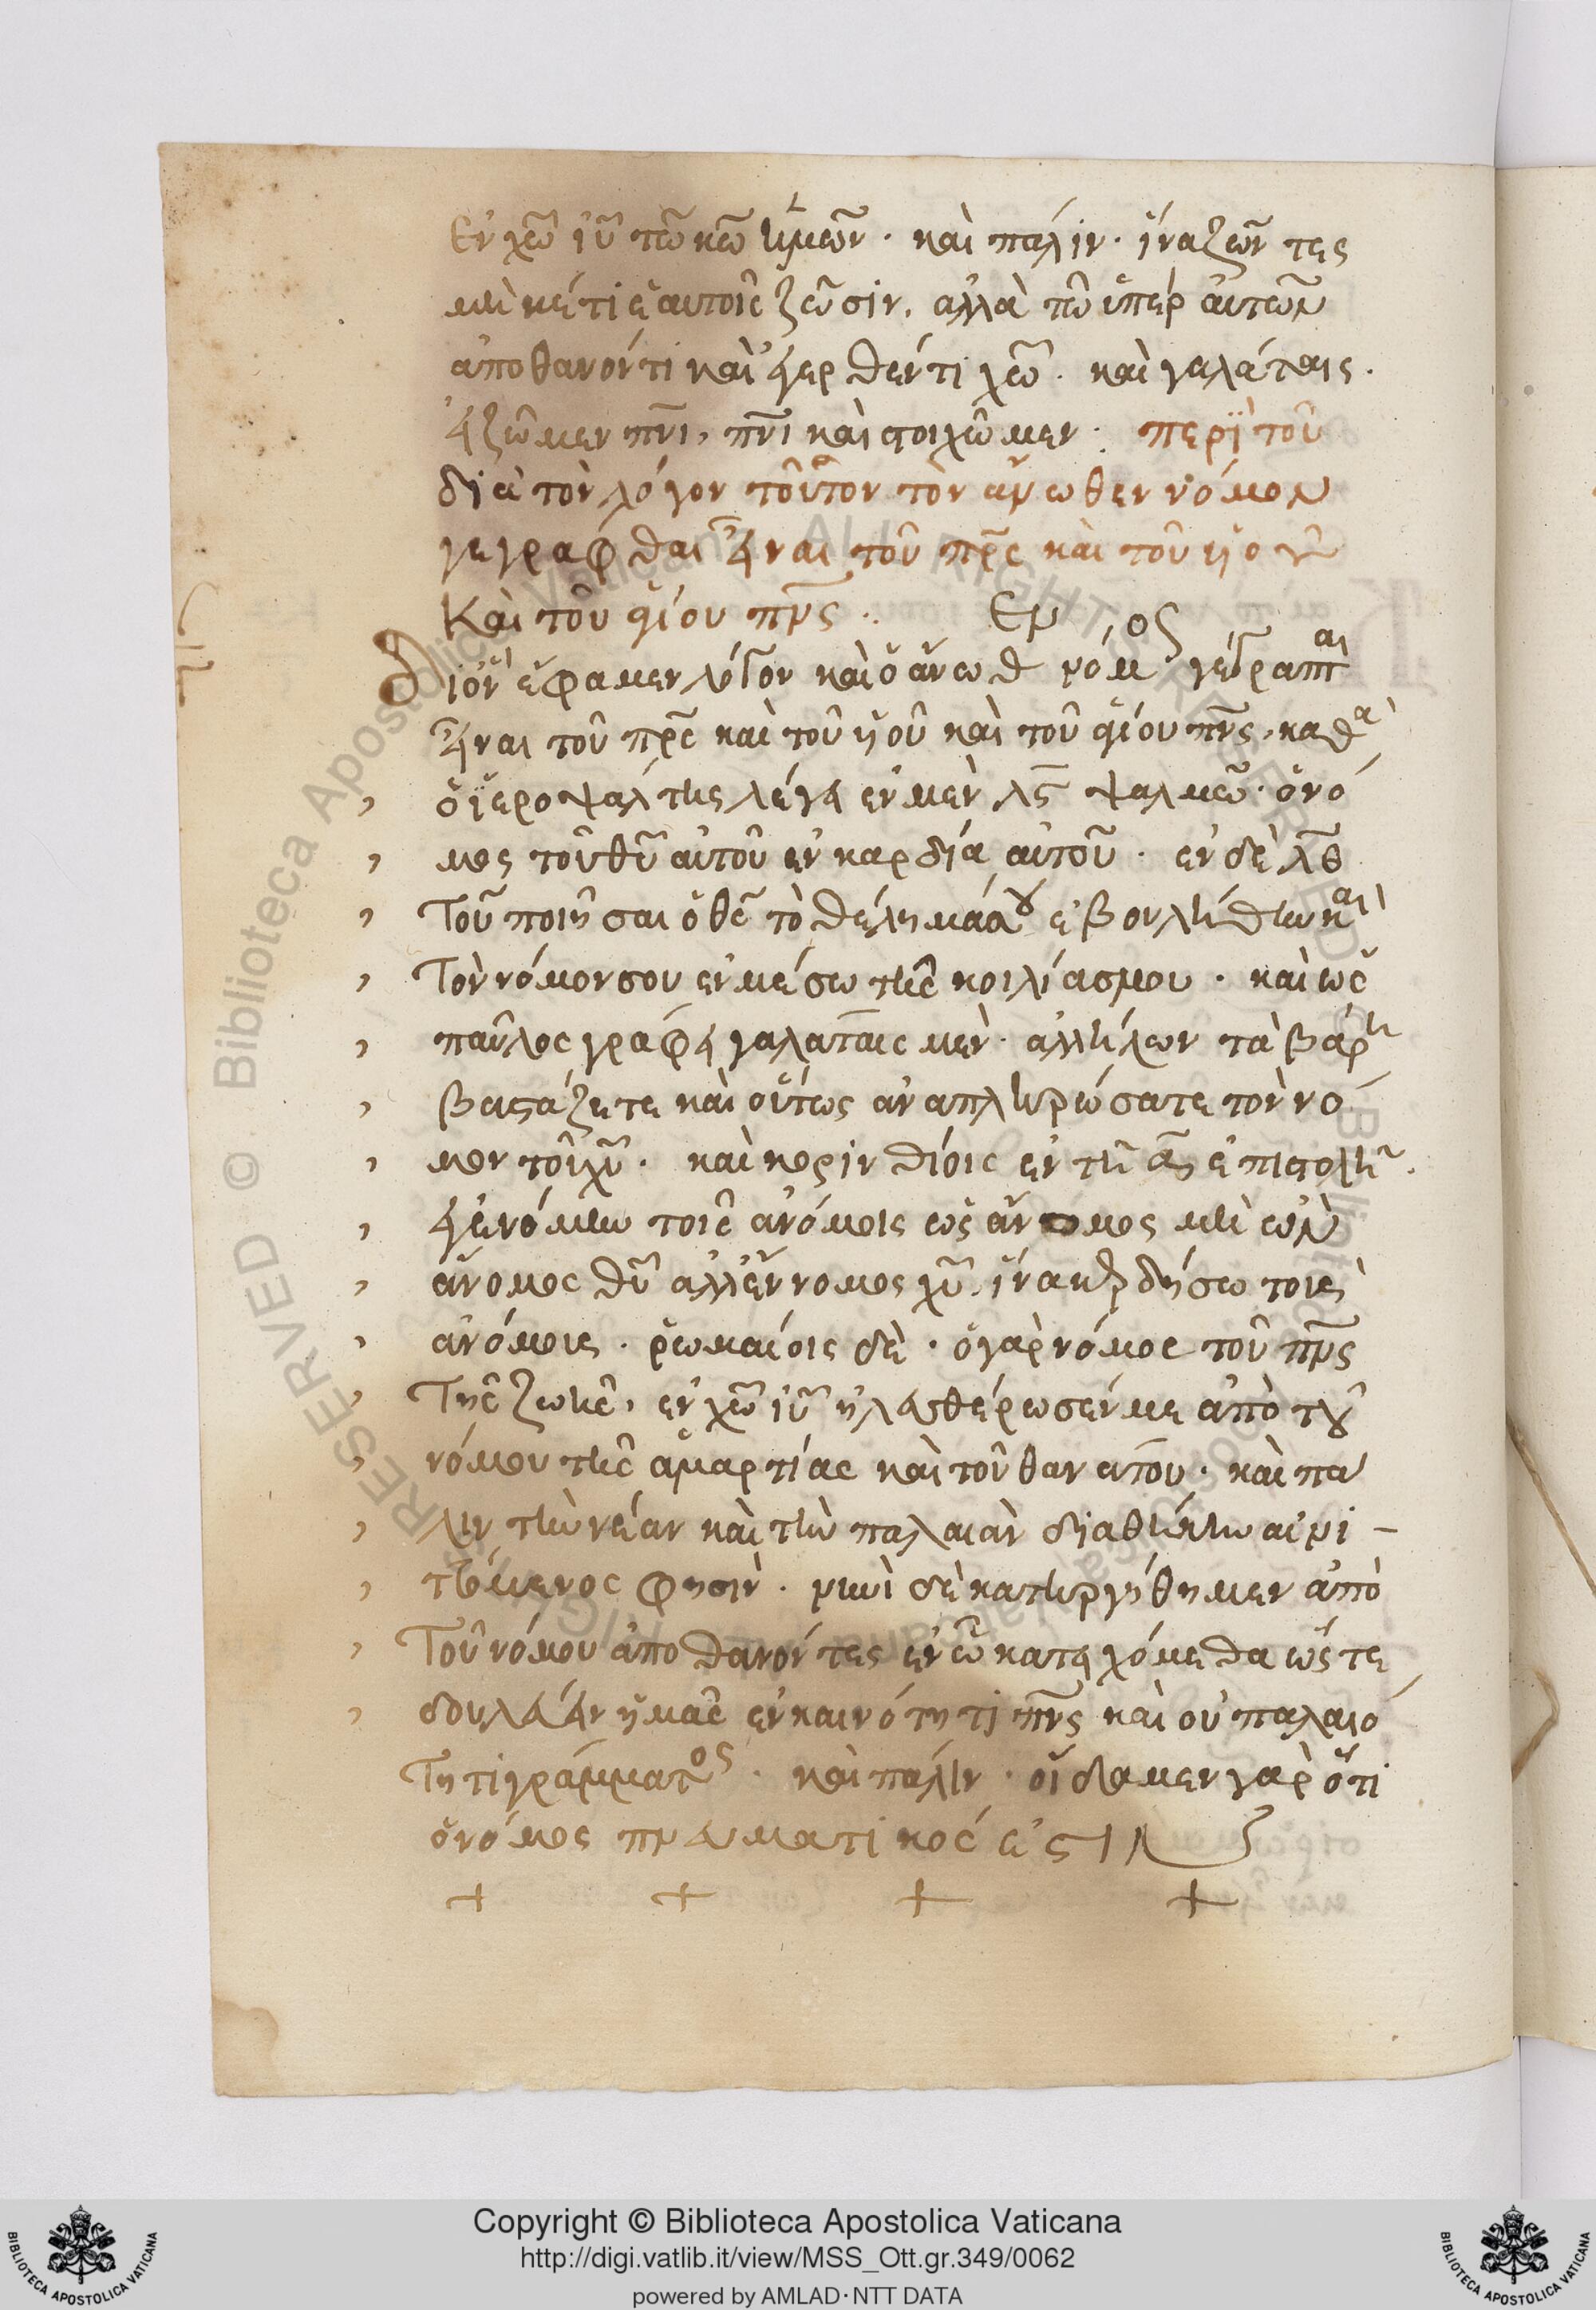 Ἐν χῶ ιῦ τῶ κῶ ἡμῶν· καὶ πάλιν· ἵνα ζῶντες
μὴ κέτι ἑαυτοῖς ζῶσιν, αλλὰ τῶ ὑπὲρ αὐτῶν
ἀποθανόντι καὶ ἐγερθέντι χῶ· καὶ γαλάταις·
εἰ ζῶμεν πνι, πνι καὶ στοιχῶμεν: περὶ τοῦ
διὰ τὸν λόγον τοῦτον τὸν ἄνωθεν νόμον
γεγραφθαι εἶναι τοῦ πρς καὶ τοῦ ὑιοῦ
Καὶ τοῦ ἁγίου πνς..
Διὸν ἔφαμεν λόγον καὶ ὁ ἄνωθ νόμος γέγραπται
εἶναι τοῦ πρς καὶ τοῦ ὑιοῦ καὶ τοῦ ἁγίου πνς, καθὰ
ὁ ἱεροψάλτης λέγει ἐν μὲν λς ψαλμῶ· ὁ νό
μος τοῦ θῦ αὐτοῦ ἐν καρδία αὐτοῦ· ἐν δὲ λθ
Τοῦ ποιῆσαι ὁ θς τὸ θέλημά σου ἐβουλήθην καὶ
Τὸν νόμον σου ἐν μέσω τῆς κοιλίασ μου· καὶ ὡς
παῦλος γράφει γαλάταις μὲν· αλλήλων τὰ βάρη
βαστάζετε καὶ οὕτως αναπληρώσατε τὸν νό
μον τοῦ χῦ· καὶ κορινθίοις ἐν τῆ α ἐπιστολῆ·
γενόμην τοῖς ἀνόμοις ὡς ἄνομος μὴ ὢν
ἄνομος θῦ αλλ' ἔννομος χῦ, ἵνα κερδήσω τοὺς
ἀνόμους· ῥωμαίοις δὲ· ὁ γὰρ νόμος τοῦ πνς
Τῆς ζωῆς, ἐν χῶ ιῦ ηλευθέρωσέν με ἀπὸ τοῦ
νόμου τῆς ἁμαρτίας καὶ τοῦ θανάτου· καὶ πά
λιν τὴν νέαν καὶ τὴν παλαιὰν διαθήκην αἰνι-
τόμενος φησὶν· νυνὶ δὲ κατηργήθημεν ἀπὸ
Τοῦ νόμου ἀποθανόντες ἐν ὧ κατειχόμεθα ὥστε
δουλεύειν ἡμᾶς ἐν καινότητι πνς καὶ οὐ παλαιό
Τητι γράμματος· καὶ πάλιν· οἴδαμεν γὰρ ὅτι
ὁ νόμος πνευματικός ἐστιν
+ + + +
Copyright © Biblioteca Apostolica Vaticana
http://digi.vatlib.it/view/MSS_Ott.gr.349/0062
powered by AMLAD·NTT DATA